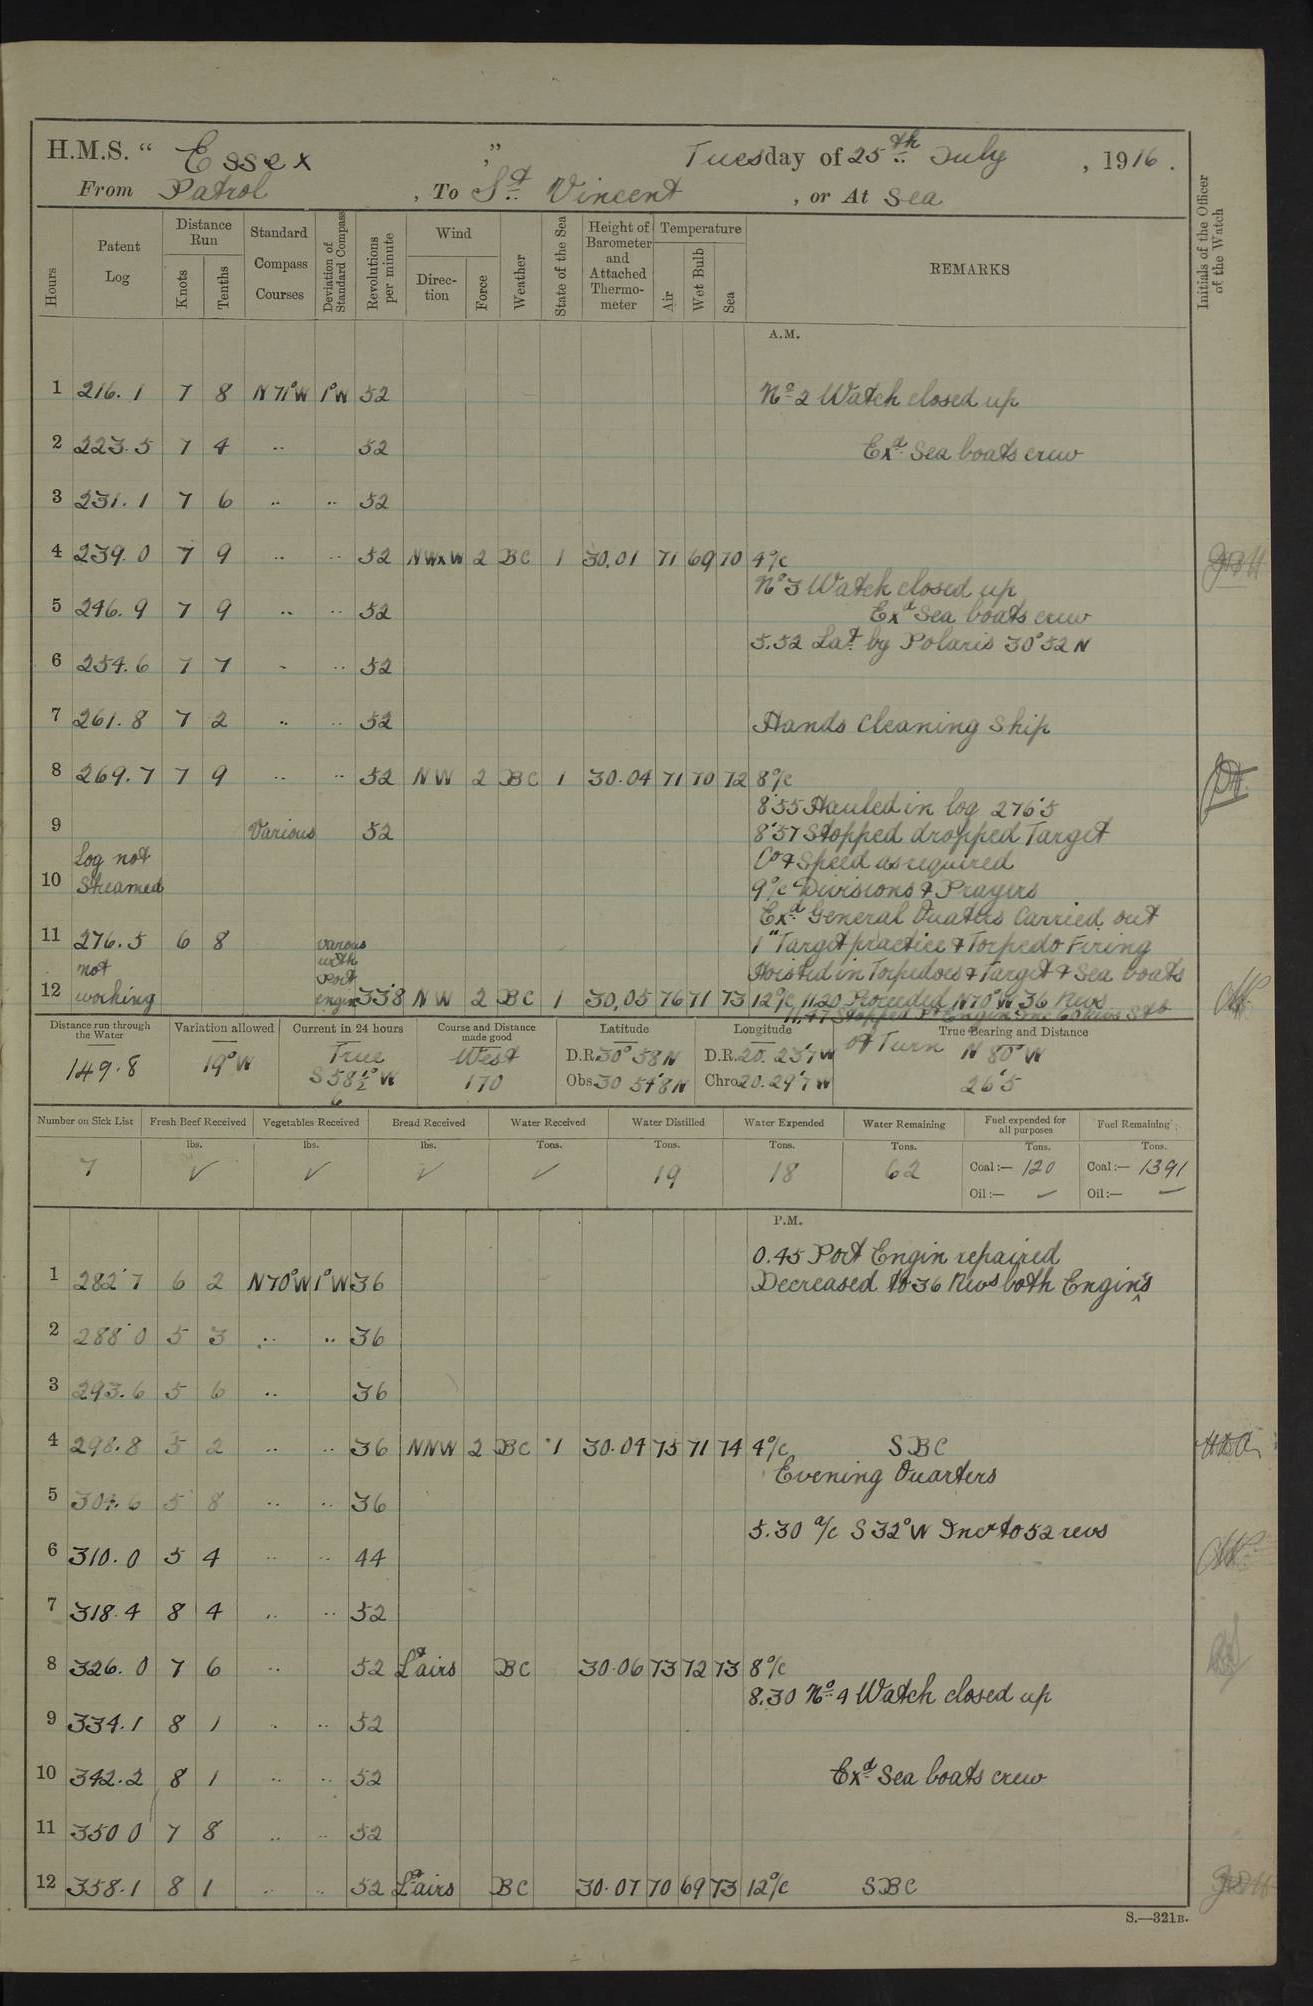 H.M.S. “ Essex ,” Tuesday of 25th July , 1916 .
From Patrol , To St Vincent , or At Sea
Hours
Patent Log
Distance Run
Knots
Tenths
Standard Compass Courses
Deviation of Standard Compass
Revolutions per minute
Wind
Direction
Force
Weather
State of the Sea
Height of Barometer and Attached Thermometer
Temperature
Air
Wet Bulb
Sea
REMARKS
Initials of the Officer of the Watch
A.M.
1 216.1 7 8 N 71°W 1°W 52 No 2 Watch closed up
2 223.5 7 4 .. 52 Exd Sea boats crew
3 231.1 7 6 .. .. 52
4 239.0 7 9 .. .. 52 NWxW 2 BC 1 30.01 71 69 70 4 o/c
No 3 Watch closed up
5 246.9 7 9 .. .. 52 Exd Sea boats crew
5.52 Lat by Polaris 30°52 N
6 254.6 7 7 .. .. 52
7 261.8 7 2 .. .. 52 Hands Cleaning Ship
8 269.7 7 9 .. .. 52 NW 2 BC 1 30.04 71 70 72 8 o/c
8.55 Hauled in log 276.5
9 Various 52 8.57 Stopped dropped Target
Log not Co & Speed as required
10 Streamed 9 o/c Divisions & Prayers
Exd General Quaters Carried out
11 276.5 6 8 1" Target practice & Torpedo Firing
not various with Port engin Hoisted in Torpedoes & Target & Sea boats
12 working 33.8 NW 2 BC 1 30.05 76 71 73 12 o/c 11.20 Proceeded N70°W 36 Revs
11.47 Stopped Pt Engin Inc 60 Revs Stb
of Turn
Distance run through the Water 149.8
Variation allowed 19°W
Current in 24 hours True S 58½°W 6
Course and Distance made good West 170
Latitude D.R. 30° 58 N Obs. 30 54.8 N
Longitude D.R. 20. 23.7 W Chro. 20. 29.7 W
True Bearing and Distance N 80° W 26.5
Number on Sick List 7
Fresh Beef Received lbs. ✓
Vegetables Received lbs. ✓
Bread Received lbs. ✓
Water Received Tons. ✓
Water Distilled Tons. 19
Water Expended Tons. 18
Water Remaining Tons. 62
Fuel expended for all purposes Tons. Coal:— 120 Oil:— —
Fuel Remaining Tons. Coal:— 1391 Oil:— —
P.M.
0.45 Port Engin repaired
1 282.7 6 2 N70°W 1°W 36 Decreased to 36 Revs both Engin's
2 288.0 5 3 .. .. 36
3 293.6 5 6 .. 36
4 298.8 5 2 .. .. 36 NNW 2 BC 1 30.04 75 71 74 4 o/c SBC
Evening Quarters
5 304.6 5 8 .. .. 36
5.30 a/c S 32°W Incr to 52 revs
6 310.0 5 4 .. .. 44
7 318.4 8 4 .. .. 52
8 326.0 7 6 .. 52 Lt airs BC 30.06 73 72 73 8 o/c
8.30 No 4 Watch closed up
9 334.1 8 1 .. .. 52
10 342.2 8 1 .. .. 52 Exd Sea boats crew
11 350 0 7 8 .. .. 52
12 358.1 8 1 .. .. 52 Lt airs BC 30.07 70 69 73 12 o/c SBC
S.—321B.